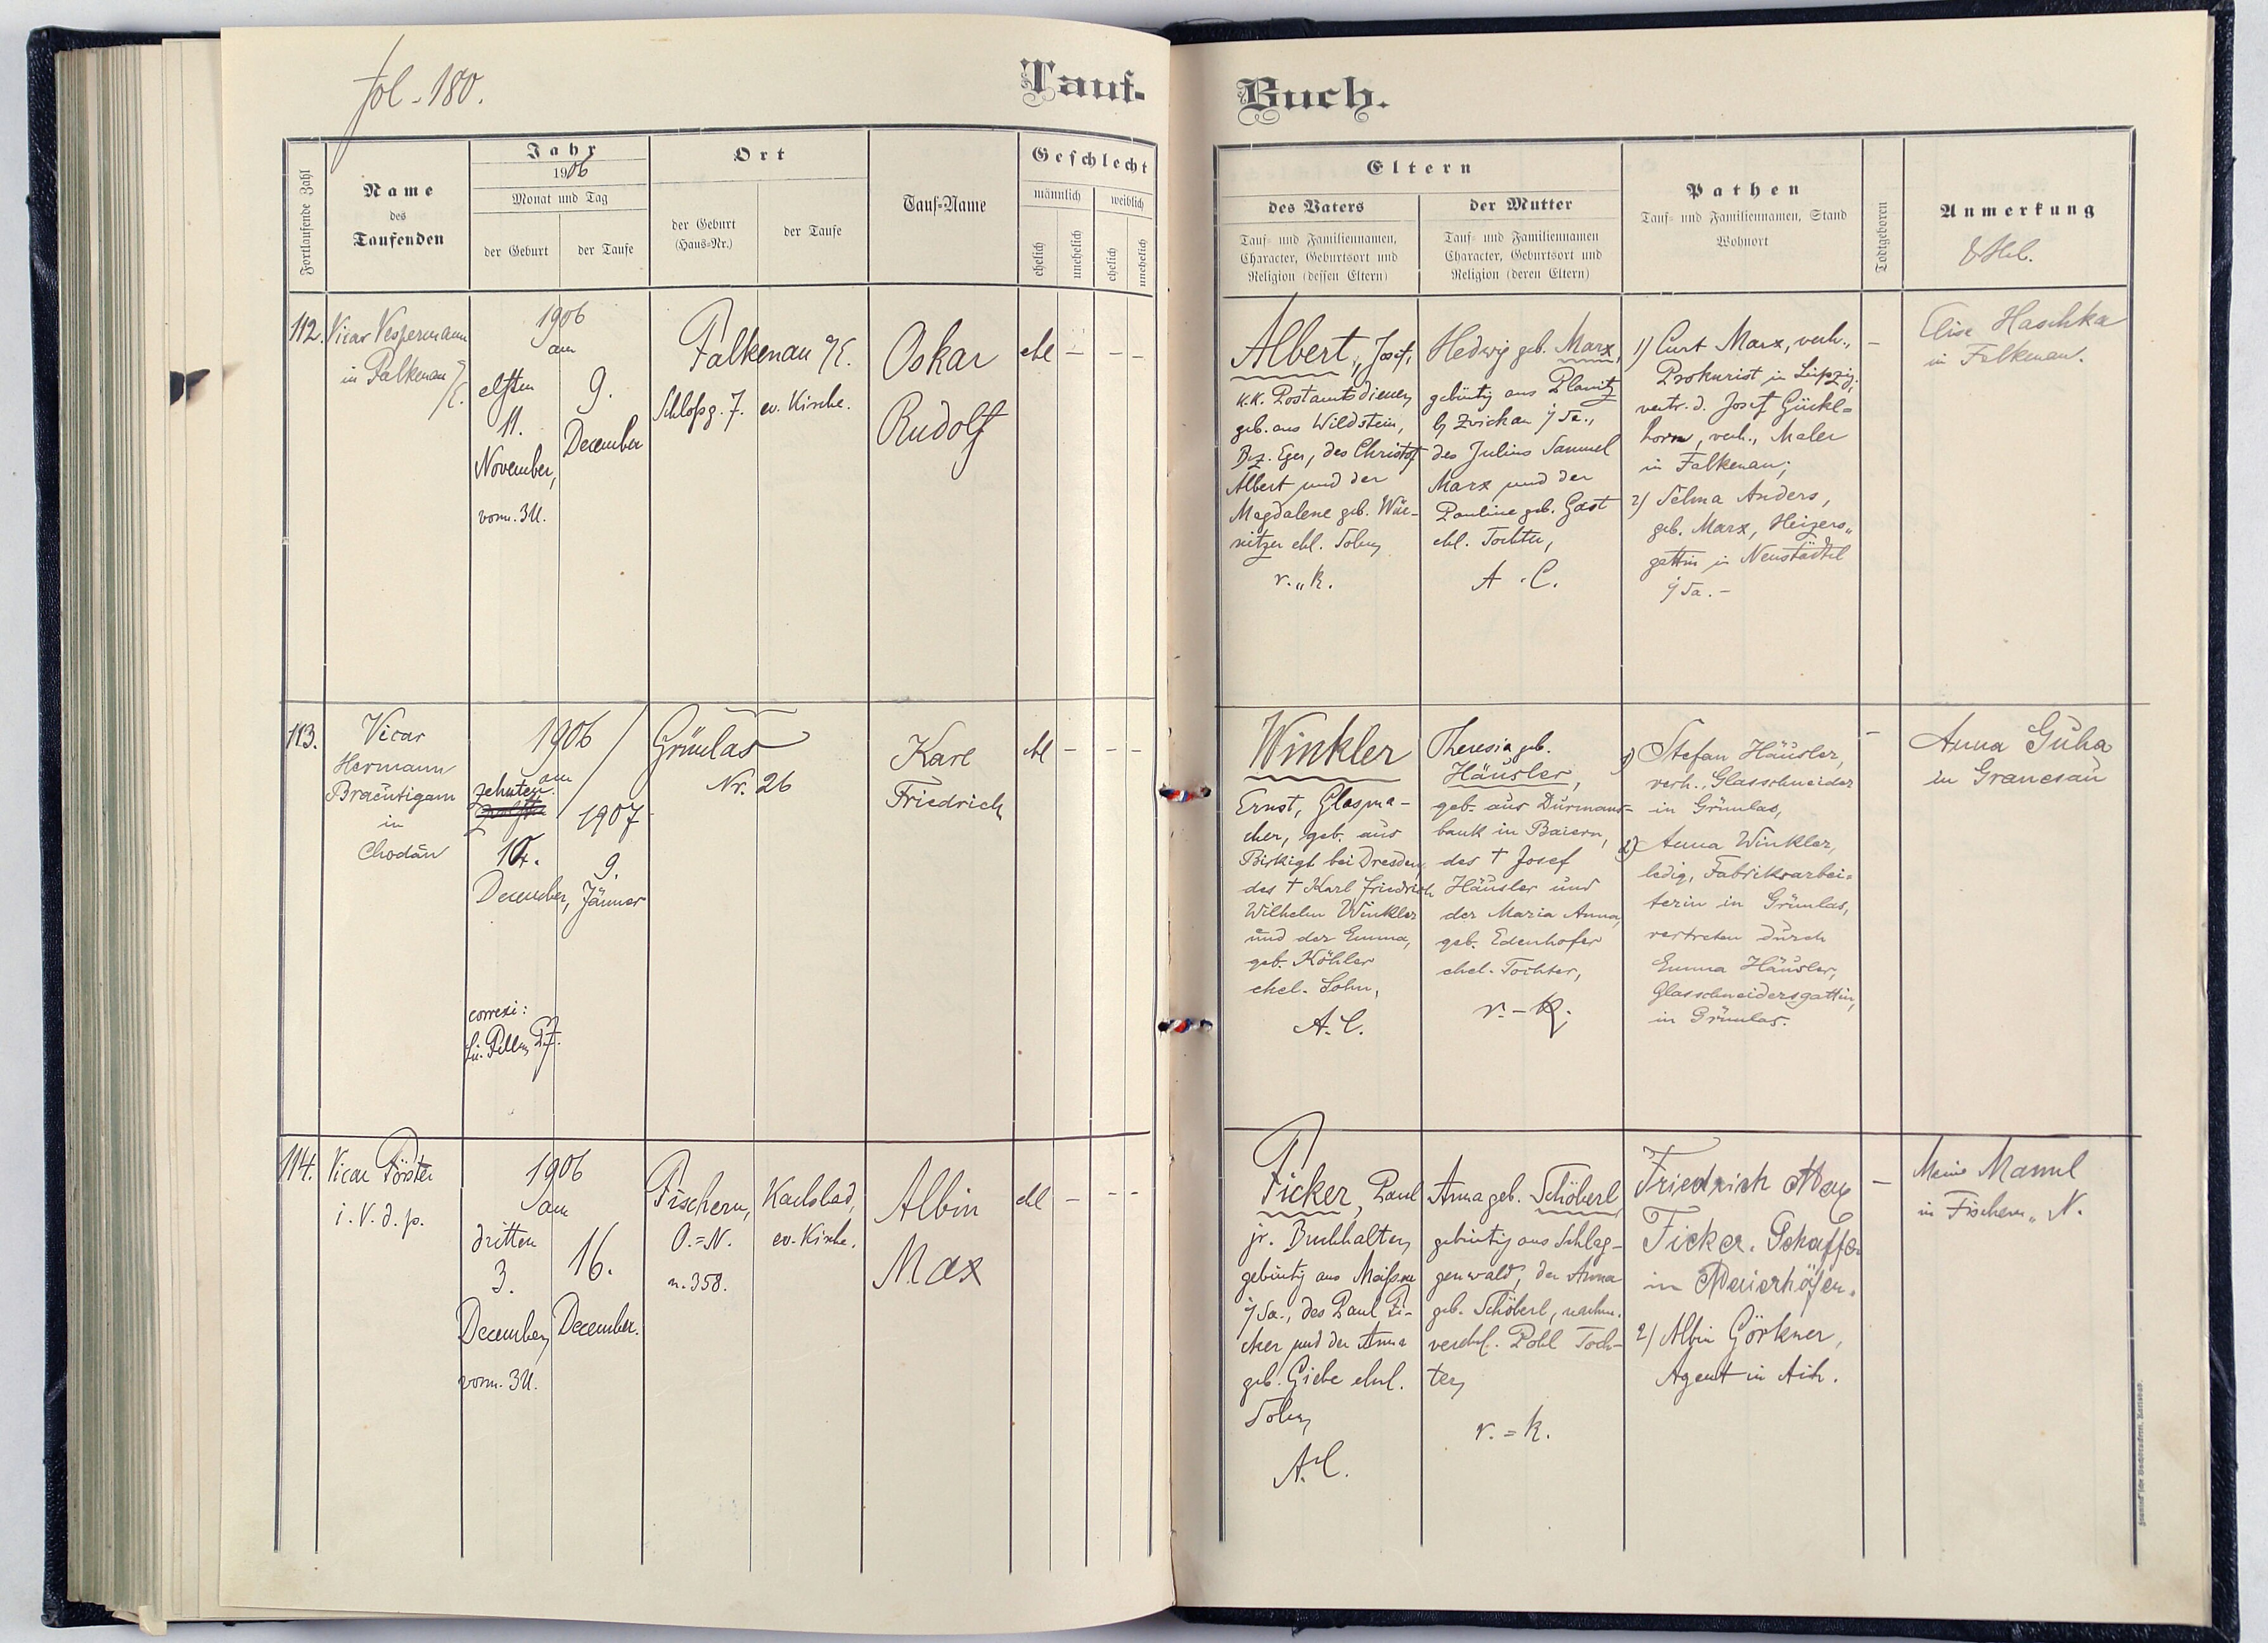 fol. 180.
Tauf-
Buch.
Fortlaufende Zahl
Name
des
Taufenden
Jahr
1906
Monat und Tag
der Geburt
der Taufe
Ort
der Geburt
(Haus-Nr.)
der Taufe
Tauf-Name
Geschlecht
männlich
weiblich
ehelich
unehelich
ehelich
unehelich
Eltern
des Vaters
Tauf- und Familiennamen,
Character, Geburtsort und
Religion (dessen Eltern)
der Mutter
Tauf- und Familiennamen
Character, Geburtsort und
Religion (deren Eltern)
Pathen
Tauf- und Familiennamen, Stand
Wohnort
Todtgeboren
Anmerkung
112.
Vicar Vespermann
in Falkenau
a/E.
1906
am
elften
11.
November,
vorm. 3 U.
9.
December
Falkenau a/E.
Schloßg. 7.
ev. Kirche.
Oskar
Rudolf
ehl
–
– –
Albert, Josef,
k.k. Postamtsdiener,
geb. aus Wildstein,
Bez. Eger, des Christof
Albert und der
Magdalene geb. Wür-
nitzer ehl. Sohn,
r.„k.
Hedwig geb. Marx,
gebürtig aus Planitz
b/ Zwickau i/Sa.,
des Julius Samuel
Marx und der
Pauline geb. Gast
ehl. Tochter,
A.C.
1) Curt Marx, verh.,
Prokurist in Leipzig,
vertr. d. Josef Gückl-
horn, verh., Maler
in Falkenau;
2) Selma Anders,
geb. Marx, Heizers-
gattin in Neustädtel
i/Sa. –
–
Elise Haschka
in Falkenau.
113.
Vicar
Hermann
Bräutigam
in
Chodau
1906
am
zehnten
10.
December,
correxi:
1907
9.
Jänner
Grünlas
Nr. 26
Karl
Friedrich
ehl
–
– –
Winkler
Ernst, Glasma-
cher, geb. aus
Birkigt bei Dresden,
des † Karl Friedrich
Wilhelm Winkler
und der Emma,
geb. Köhler
ehel. Sohn,
A.C.
Theresia geb.
Häusler,
geb. aus Dürmans-
bank in Baiern,
des † Josef
Häusler und
der Maria Anna,
geb. Edenhofer
ehel. Tochter,
r.-k.
1) Stefan Häusler,
verh., Glasschneider
in Grünlas,
2) Anna Winkler,
ledig, Fabriksarbei-
terin in Grünlas,
vertreten durch
Emma Häusler,
Glasschneidersgattin,
in Grünlas.
–
Anna Guha
in Granesau
114.
Vicar Förster
i. V. d. p.
1906
am
dritten
3.
December,
vorm. 3 U.
16.
December.
Fischern,
O.=N.
n. 358.
Karlsbad,
ev. Kirche.
Albin
Max
ehl
–
– –
Ficker, Paul
jr. Buchhalter,
gebürtig aus Meißen
i/Sa., des Paul Fi-
cker und der Anna
geb. Giebe ehel.
Sohn,
A.C.
Anna geb. Schöberl,
gebürtig aus Schlag-
genwald, der Anna
geb. Schöberl, nachm.
verehl. Pohl Toch-
ter,
r.=k.
Friedrich Max
Ficker. Schaffer
in Meierhöfen.
2) Albin Görkner,
Agent in Aich.
–
in Fischern„ N.